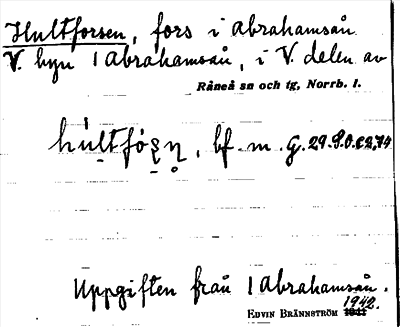 Hultforsen, fors i Abrahamsån
V. byn 1 Abrahamsån, i V. delen av
Råneå sn och tg, Norrb. l.
bf. m. G. 29.9.0.
Uppgiften från 1 Abrahamsån.
1942.
EDVIN BRÄNNSTRÖM 1941